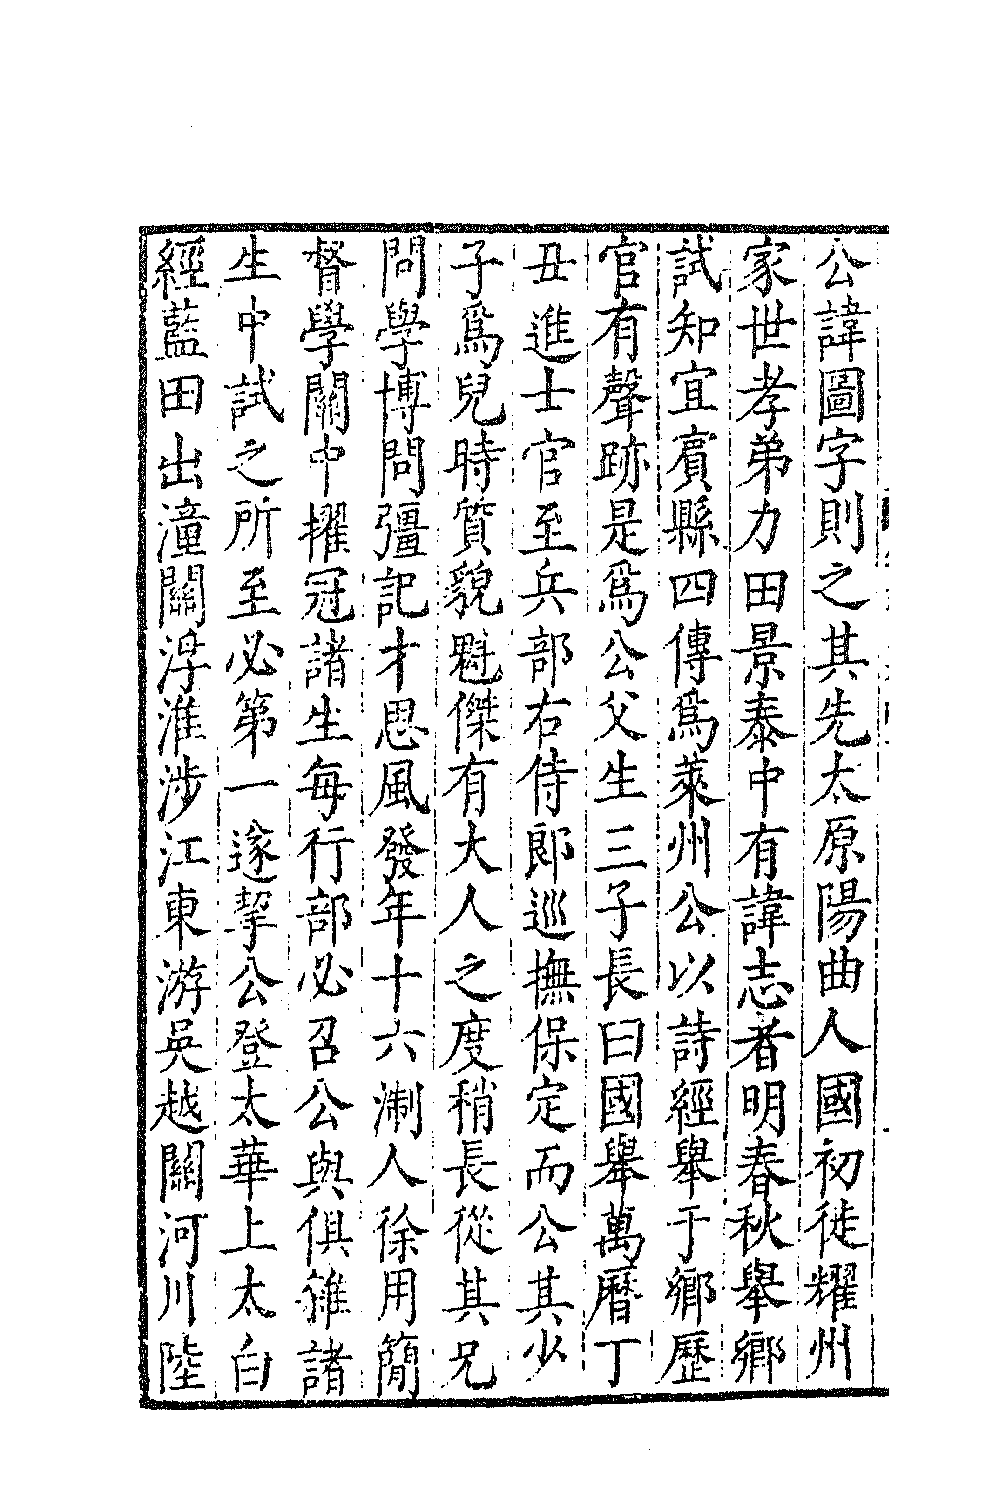 公諱圖字則之其先太原陽曲人國初徙耀州
家世孝弟力田景泰中有諱志者明春秋舉鄉
試知宜賓縣四傳爲萊州公以詩經舉于鄉歷
官有聲跡是爲公父生三子長曰國舉萬曆丁
丑進士官至兵部右侍郎巡撫保定而公其少
子爲兒時質貌魁傑有大人之度稍長從其兄
問學博問彊記才思風發年十六淛人徐用簡
督學關中擢冠諸生每行部必召公與俱雜諸
生中試之所至必第一遂挈公登太華上太白
經藍田出潼關浮淮涉江東游吳越關河川陸